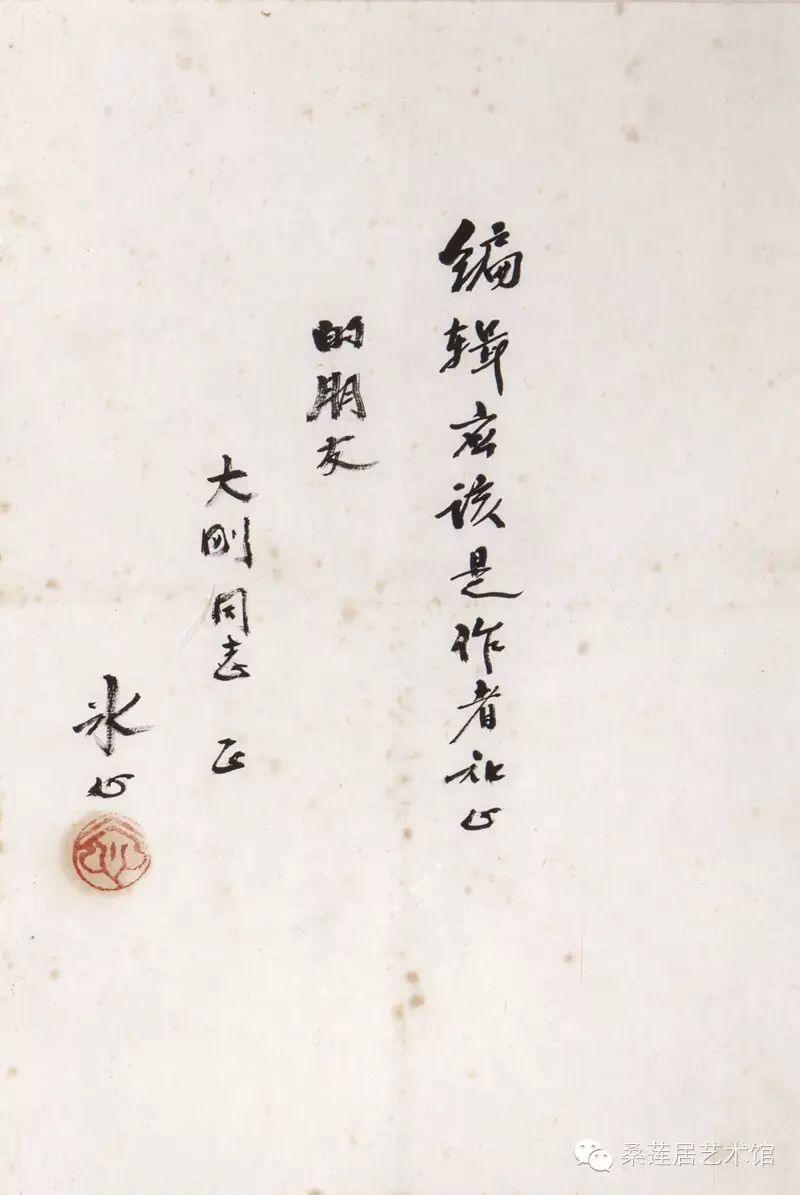 编辑应该是作者知心
的朋友
大刚同志 正
冰心
桑莲居艺术馆